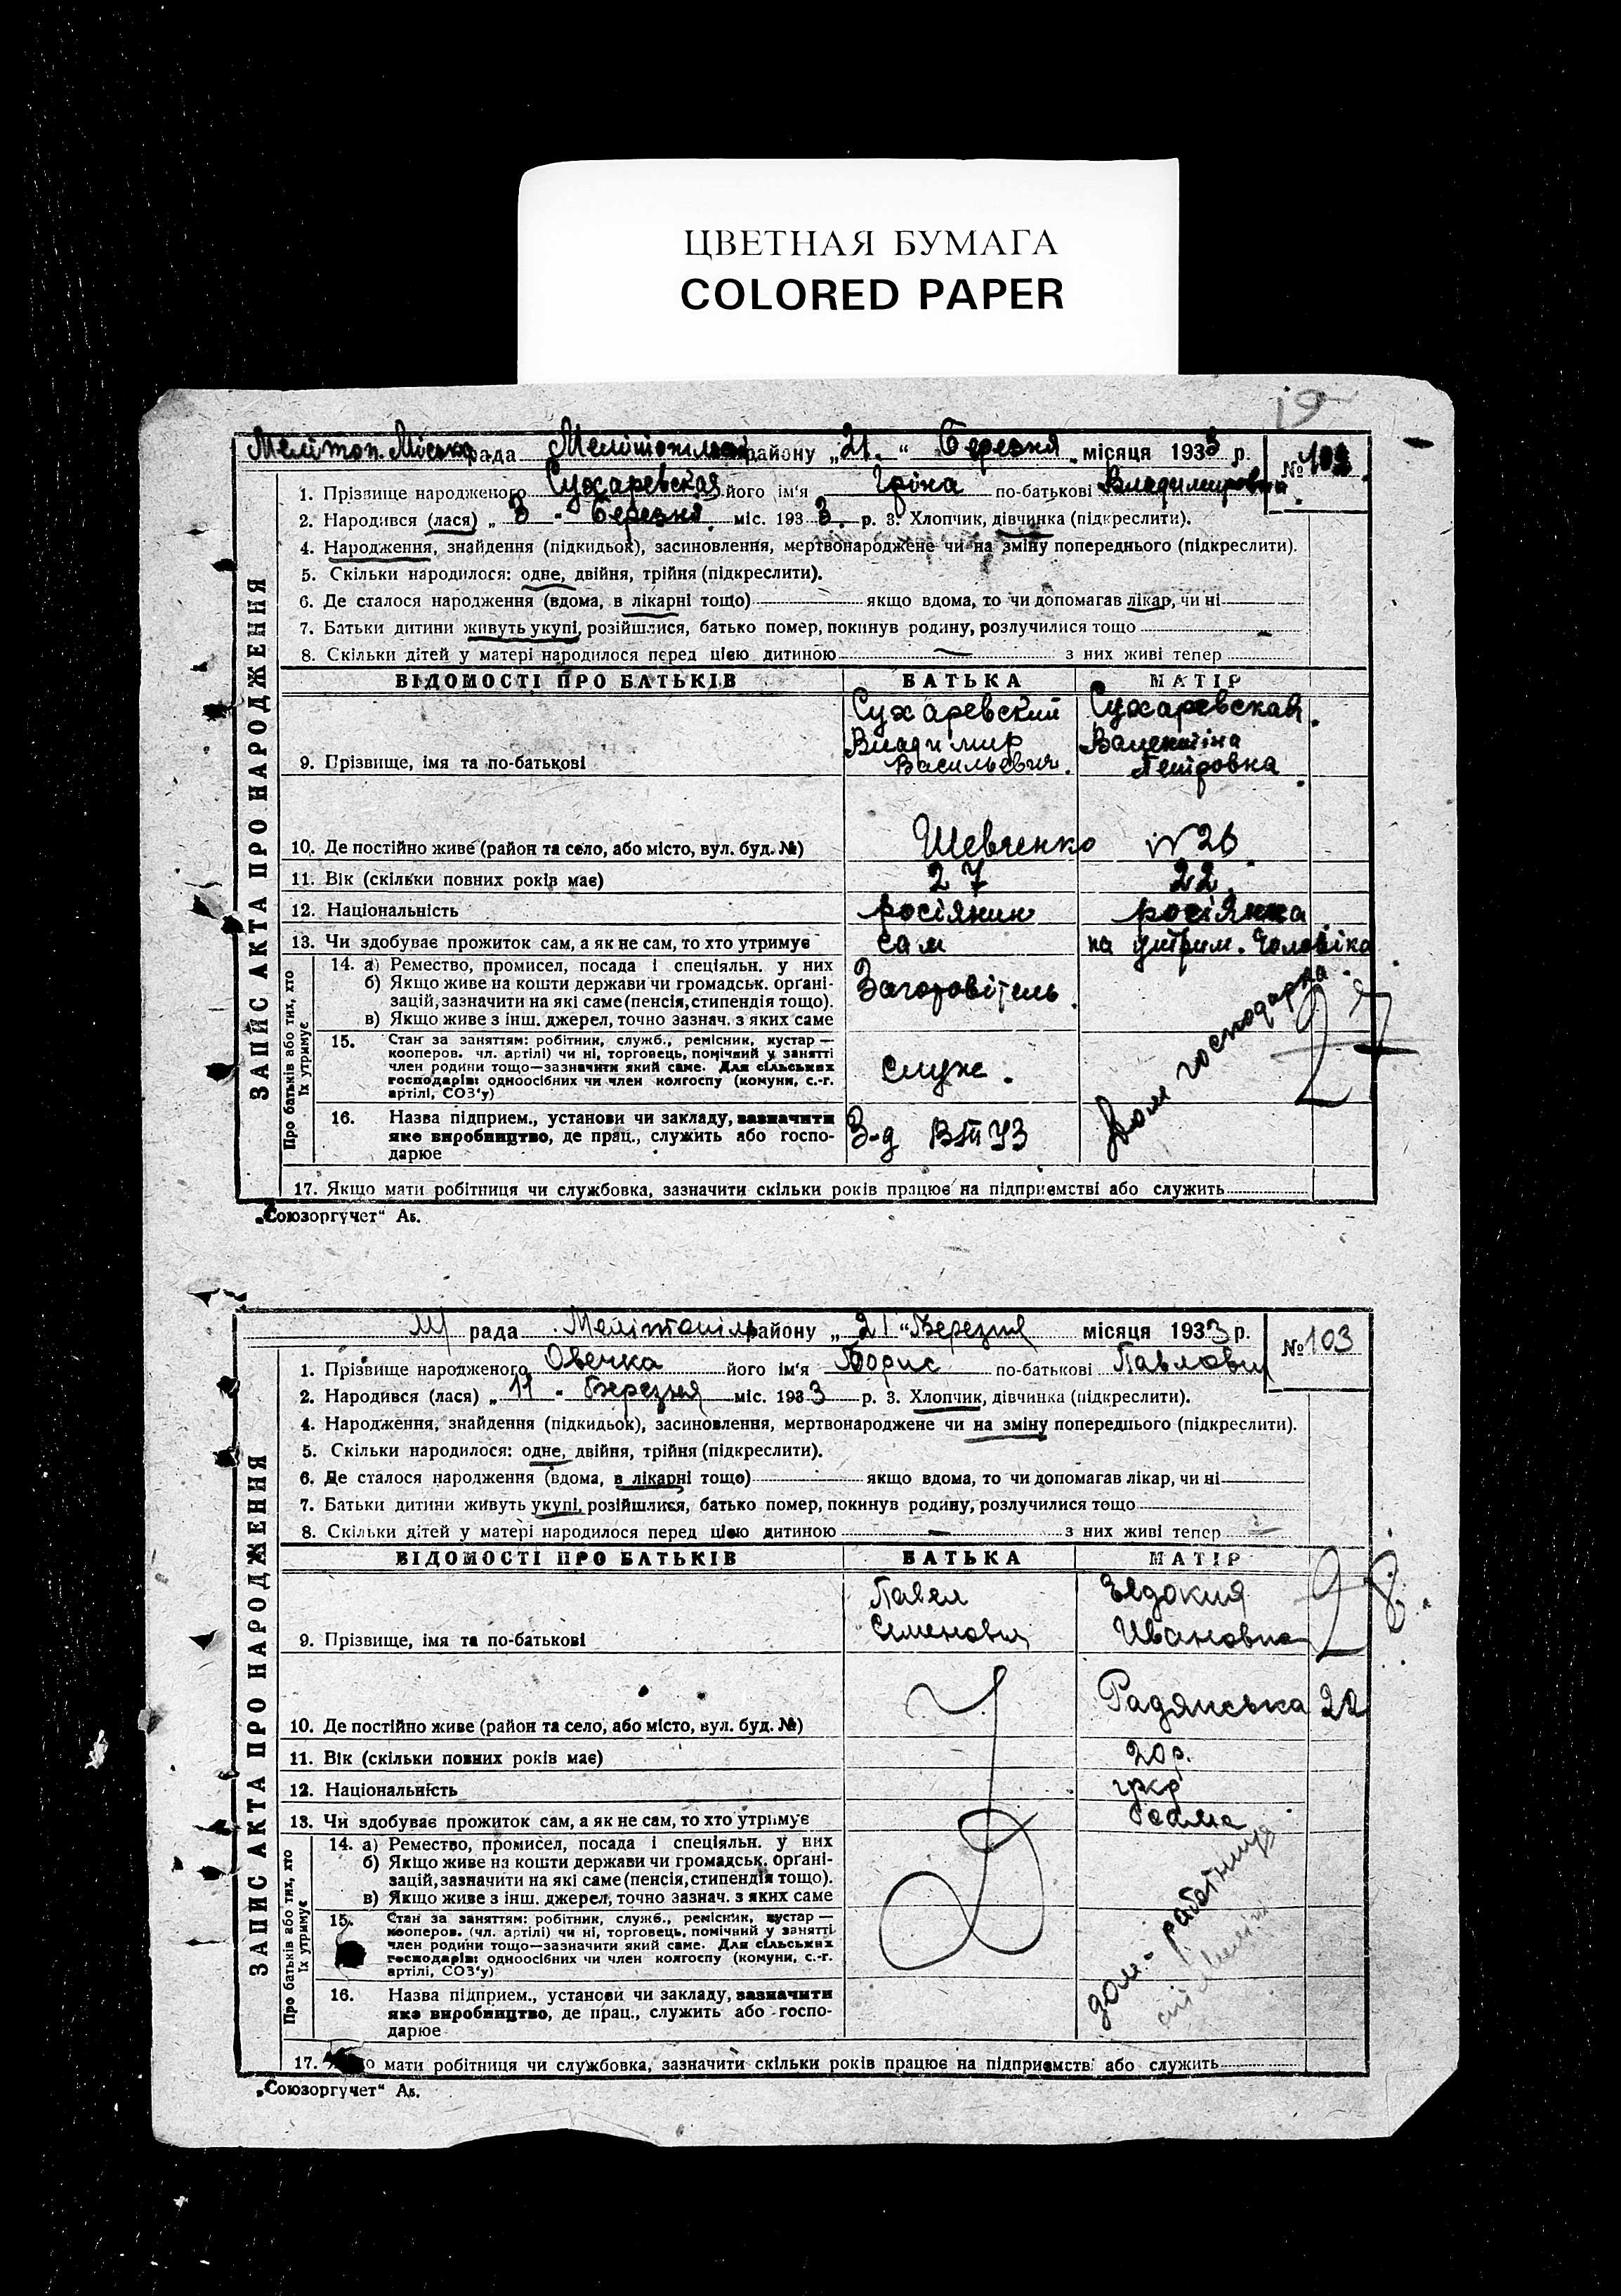 ЦВЕТНАЯ БУМАГА
COLORED PAPER
19
Мелітоп. Міська рада Мелітопільськ району „21.“ Березня місяця 1933 р.
№
1. Прізвище народженого Сухаревская його ім'я Іріна по-батькові Владимировна.
2. Народився (лася) „ 3 „ Березня міс. 1933. р. 3. Хлопчик, дівчинка (підкреслити).
4. Народження, знайдення (підкидьок), засиновлення, мертвонароджене чи на зміну попереднього (підкреслити).
5. Скільки народилося: одне, двійня, трійня (підкреслити).
6. Де сталося народження (вдома, в лікарні тощо) якщо вдома, то чи допомагав лікар, чи ні
7. Батьки дитини живуть укупі, розійшлися, батько помер, покинув родину, розлучилися тощо
8. Скільки дітей у матері народилося перед цією дитиною — з них живі тепер
ЗАПИС АКТА ПРО НАРОДЖЕННЯ
ВІДОМОСТІ ПРО БАТЬКІВ БАТЬКА МАТІР
9. Прізвище, імя та по-батькові
Сухаревский
Владимир
Васильевич.
Сухаревская.
Валентіна
Петровка
10. Де постійно живе (район та село, або місто, вул. буд. №) Шевченко № 26.
11. Вік (скільки повних років має) 27 22.
12. Національність росіянин росіянка
13. Чи здобуває прожиток сам, а як не сам, то хто утримує сам на утрим. чоловіка
Про батьків або тих, хто їх утримує
14. а) Ремество, промисел, посада і спеціяльн. у них
б) Якщо живе на кошти держави чи громадськ. органі-
зацій, зазначити на які саме (пенсія, стипендія тощо).
в) Якщо живе з інш. джерел, точно зазнач. з яких саме
Заготовітель.
Дом господарка
27
15. Стан за заняттям: робітник, служб., ремісник, кустар —
кооперов. чл. артілі) чи ні, торговець, помічний у занятті
член родини тощо—зазначити який саме. Для сільських
господарів: одноосібних чи член колгоспу (комуни, с.-г.
артілі, СОЗ'у)
служ.
16. Назва підприєм., установи чи закладу, зазначити
яке виробництво, де прац., служить або госпо-
дарює
З-д ВТУЗ
17. Якщо мати робітниця чи службовка, зазначити скільки років працює на підприємстві або служить
„Союзоргучет“ Аб.
М/ рада Мелітопіль району „21“ Березня місяця 1933 р.
№ 103
1. Прізвище народженого Овечка його ім'я Борис по-батькові Павлович
2. Народився (лася) „ 11 „ Березня міс. 1933 р. 3. Хлопчик, дівчинка (підкреслити).
4. Народження, знайдення (підкидьок), засиновлення, мертвонароджене чи на зміну попереднього (підкреслити).
5. Скільки народилося: одне, двійня, трійня (підкреслити).
6. Де сталося народження (вдома, в лікарні тощо) якщо вдома, то чи допомагав лікар, чи ні
7. Батьки дитини живуть укупі, розійшлися, батько помер, покинув родину, розлучилися тощо
8. Скільки дітей у матері народилося перед цією дитиною — з них живі тепер —
ЗАПИС АКТА ПРО НАРОДЖЕННЯ
ВІДОМОСТІ ПРО БАТЬКІВ БАТЬКА МАТІР
28.
9. Прізвище, імя та по-батькові
Павел
Семенович
Евдокия
Ивановна
10. Де постійно живе (район та село, або місто, вул. буд. №) Радянська 22
11. Вік (скільки повних років має) 20 р.
12. Національність укр
13. Чи здобуває прожиток сам, а як не сам, то хто утримує сама
Про батьків або тих, хто їх утримує
14. а) Ремество, промисел, посада і спеціяльн. у них
б) Якщо живе на кошти держави чи громадськ. органі-
зацій, зазначити на які саме (пенсія, стипендія тощо).
в) Якщо живе з інш. джерел, точно зазнач. з яких саме
дом- работница
15. Стан за заняттям: робітник, служб., ремісник, кустар —
кооперов. (чл. артілі) чи ні, торговець, помічний у занятті
член родини тощо—зазначити який саме. Для сільських
господарів: одноосібних чи член колгоспу (комуни, с.-г.
артілі, СОЗ'у)
16. Назва підприєм., установи чи закладу, зазначити
яке виробництво, де прац., служить або госпо-
дарює
17. мати робітниця чи службовка, зазначити скільки років працює на підприємстві або служить
„Союзоргучет“ Аб.